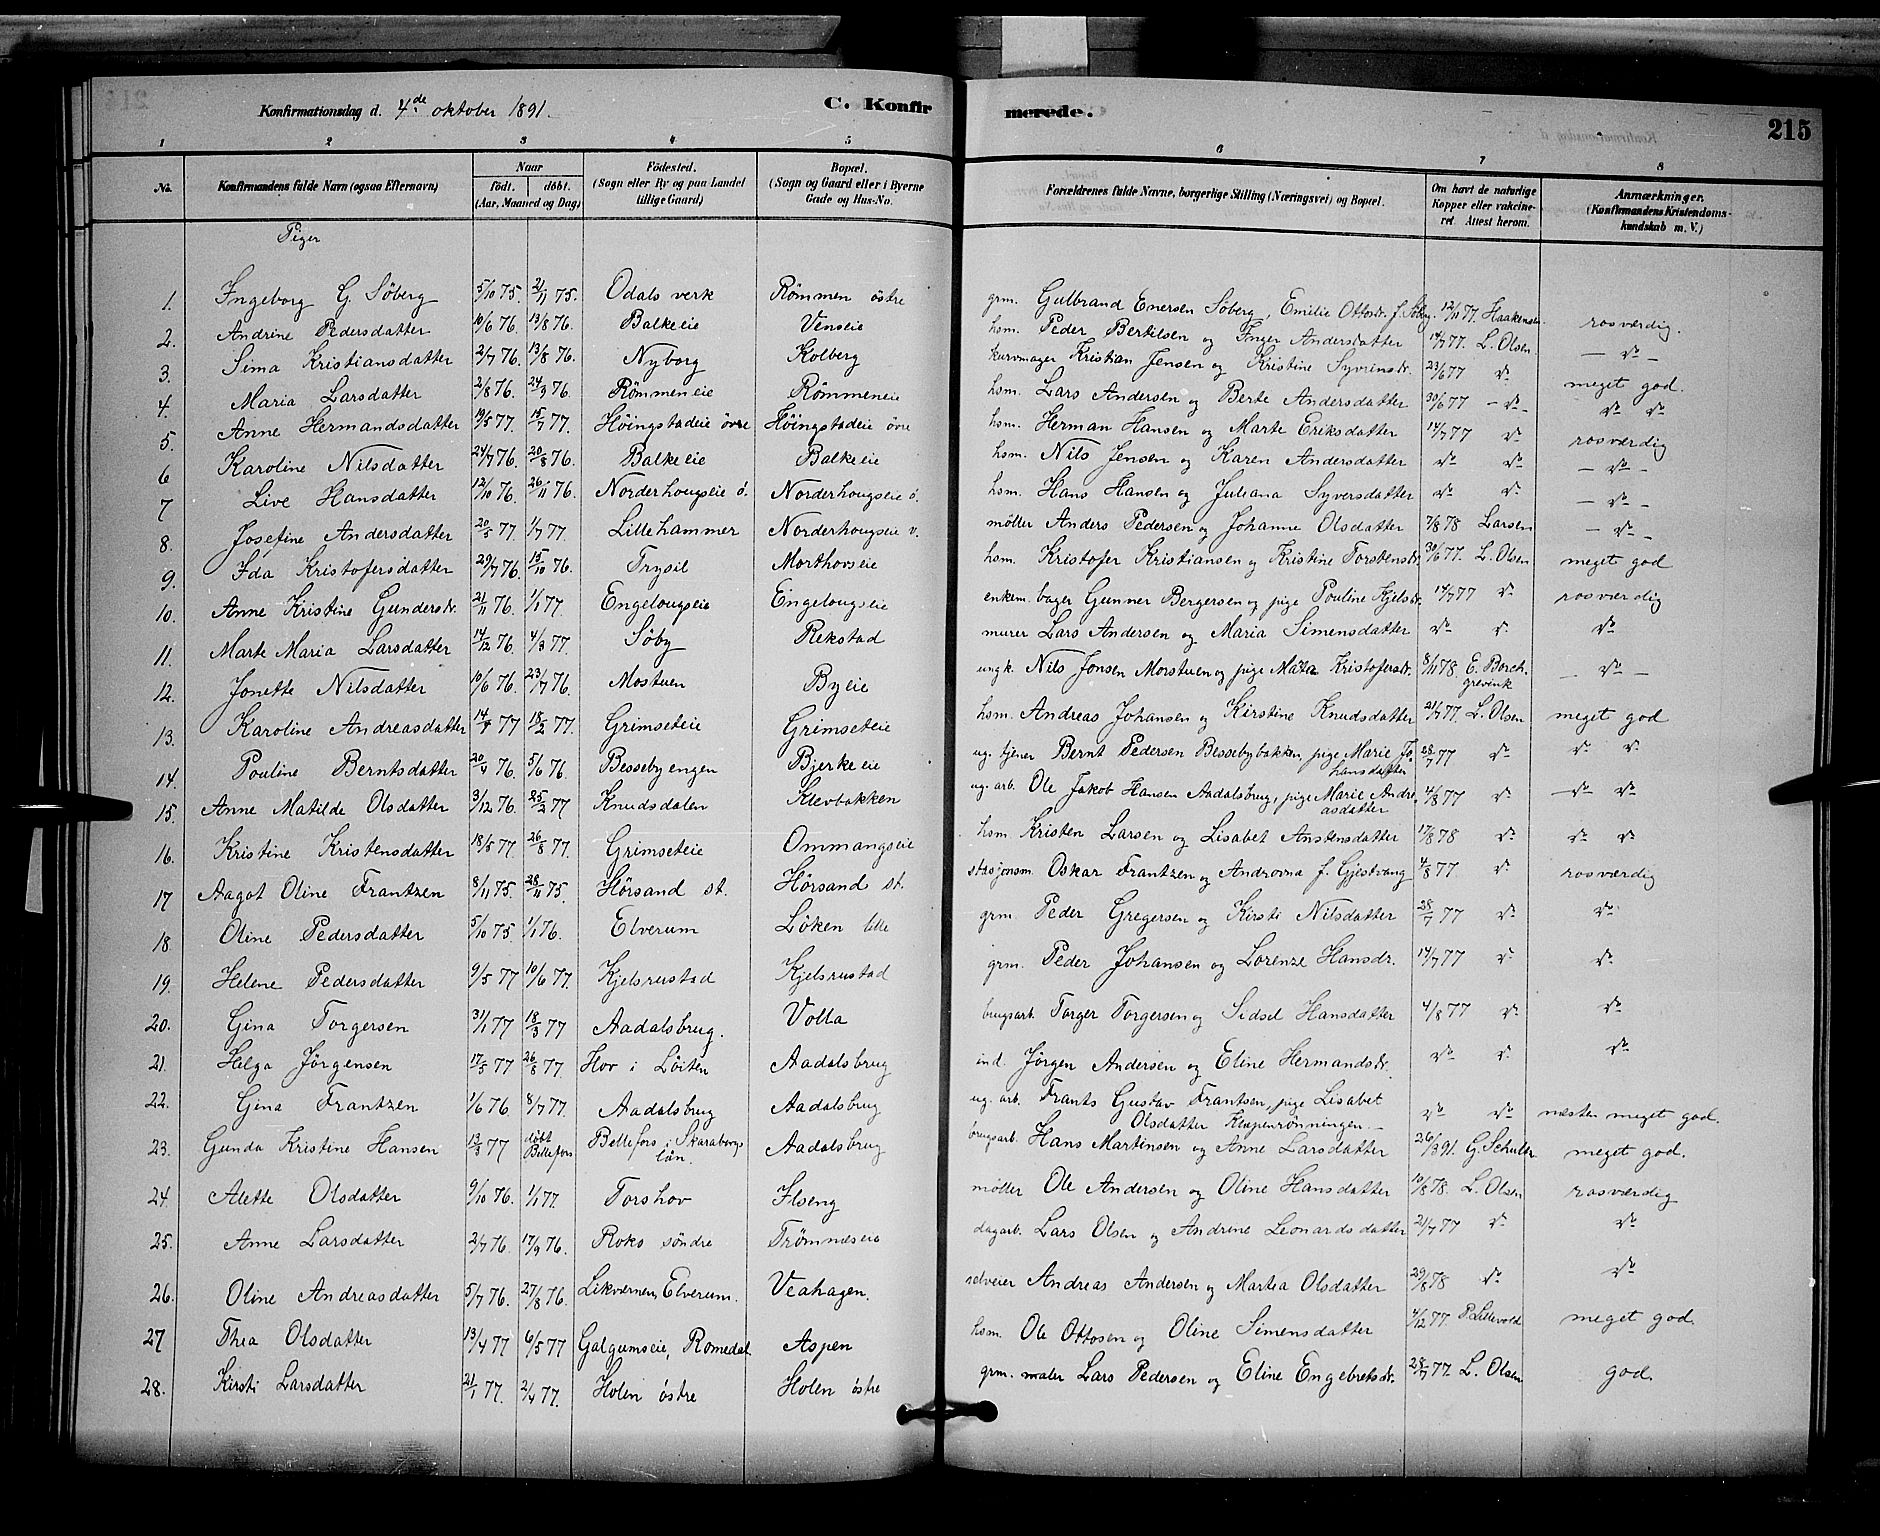 Konfirmationsdag d. 4de oktober 1891. C. Konfirmerede. 215
1 2 3 4 5 6 7 8
No. Konfirmandens fulde Navn (ogsaa Efternavn) Naar födt. döbt. (Aar, Maaned og Dag) Födested. (Sogn eller By og paa Landet tillige Gaard) Bopæl. (Sogn og Gaard eller i Byerne Gade og Hus-No. Forældrenes fulde Navne, borgerlige Stilling (Næringsvei) og Bopæl. Om havt de naturlige Kopper eller vakcineret Attest herom. Anmærkninger. (Konfirmandens Kristendomskundskab m. V.)
Piger
1. Ingeborg G. Söberg 5/10 75. 21/11 75. Odals verk Römmen östre grm. Gulbrand Enersen Söberg, Emilie Ottosdr. f. Söby. 12/11 77. Haakensen. rosværdig.
2. Andrine Pedersdatter 10/6 76. 13/8 76. Balkeeie Venseie hsm. Peder Bertilsen og Inger Andersdatter 14/7 77. L. Olsen. — do —
3. Sima Kristiansdatter 2/7 76. 13/8 76. Nyborg Kolberg kurvmager Kristian Jensen og Kristine Syvrinsdr. 23/6 77 do meget god.
4. Maria Larsdatter 2/8 76. 24/9 76. Römmeneie Römmeneie hsm. Lars Andersen og Berte Andersdatter 30/6 77 - do - do do
5. Anne Hermandsdatter 19/5 77. 15/7 77. Höingstadeie övre Höingstadeie övre hsm. Herman Hansen og Marte Eriksdatter 14/7 77 do rosværdig
6 Karoline Nilsdatter 24/7 76. 20/8 76. Balkeeie Balkeeie hsm. Nils Jensen og Karen Andersdatter do do — do —
7 Live Hansdatter 12/10 76. 26/11 76. Norderhougseie ö. Norderhougseie ö. hsm. Hans Hansen og Juliana Syversdatter do do — do —
8. Josefine Andersdatter 20/5 77. 1/7 77. Lillehammer Norderhougseie v. möller Anders Pedersen og Johanne Olsdatter 7/8 78 Larsen — do —
9. Ida Kristofersdatter 29/7 76. 15/10 76. Trysil Morthovseie hsm. Kristofer Kristiansen og Kristine Torstensdr. 30/6 77. L. Olsen meget god
10. Anne Kristine Gundersdr. 21/11 76. 1/1 77. Engelougseie Engelougseie enkem. bager Gunner Bergersen og pige Pouline Kjelsdr. 14/7 77 do rosværdig
11. Marte Maria Larsdatter 14/12 76. 4/3 77. Söby Rekstad murer Lars Andersen og Maria Simensdatter do do do
12. Jonette Nilsdatter 10/6 76. 23/7 76. Mostuen Byeie ungk. Nils Jonsen Morstuen og pige Mata Kristofersdr. 8/11 78 E. Borchgrevink — do —
13. Karoline Andreasdatter 14/1 77 18/2 77. Grimseteie Grimseteie hsm. Andreas Johansen og Kirstine Knudsdatter 21/7 77. L. Olsen meget god
14. Pouline Berntsdatter 20/4 76. 5/6 76. Bessebyengen Bjerkeeie ug. tjener Bernt Pedersen Bessebybakken, pige Marie Johansdatter 28/7 77 do do do
15. Anne Matilde Olsdatter 3/12 76. 25/2 77 Knudsdalen Klevbakken ug. arb. Ole Jakob Hansen Aadalsbrug, pige Marie Andreasdatter 4/8 77 do — do do
16. Kristine Kristensdatter 18/5 77. 26/8 77. Grimseteie Ommangseie hsm. Kristen Larsen og Lisabet Anstensdatter 17/8 78 do do do
17 Aagot Oline Frantzen 8/11 75. 28/11 75. Hörsand st. Hörsand st. stasjonsm. Oskar Frantzen og Androvna f. Gjestvang 4/8 77. do rosværdig
18. Oline Pedersdatter 5/10 75. 1/1 76. Elverum Löken lille grm. Peder Gregersen og Kirsti Nilsdatter 28/7 77 do do
19. Helene Pedersdatter 9/5 77 10/6 77. Kjelsrustad Kjelsrustad grm. Peder Johansen og Lorenze Hansdr. 14/7 77 do do
20. Gina Torgersen 31/1 77 18/3 77 Aadalsbrug. Volla brugsarb. Torger Torgersen og Sidsel Hansdatter 4/8 77 do do
21. Helga Jörgensen 17/5 77 26/8 77. Hov i Löiten Aadalsbrug ind. Jörgen Andersen og Eline Hermandsdr. do do do
22. Gina Frantzen 1/6 76 8/7 77. Aadalsbrug Aadalsbrug ug. arb. Frants Gustav Frantsen, pige Lisabet Olsdatter Kloperönningen. do do næsten meget god.
23. Gunda Kristine Hansen 13/3 77 döbt Bellefors Bellefors i Skaraborgs län. Aadalsbrug brugsarb. Hans Martinsen og Anne Larsdatter 26/3 91. G. Schulte meget god.
24. Alette Olsdatter 9/10 76. 1/1 77. Torshov Ilseng möller Ole Andersen og Oline Hansdatter 10/8 78. L. Olsen rosværdig
25. Anne Larsdatter 2/7 76 17/9 76. Roko söndre Trömneseie dagarb. Lars Olsen og Andrine Leonardsdatter 21/7 77 do do
26. Oline Andreasdatter 5/7 76. 27/8 76. Likvernen, Elverum. Veahagen. selveier Andreas Andersen og Martea Olsdatter 29/8 78 do do
27 Thea Olsdatter 13/4 77 6/5 77 Galgumseie, Romedal Aspen hsm. Ole Ottosen og Oline Simensdatter 4/12 77. P. Lillevold meget god.
28. Kirsti Larsdatter 21/1 77. 2/4 77. Holen östre Holen östre grm. maler Lars Pedersen og Eline Engebretsdr. 28/7 77. L. Olsen god.